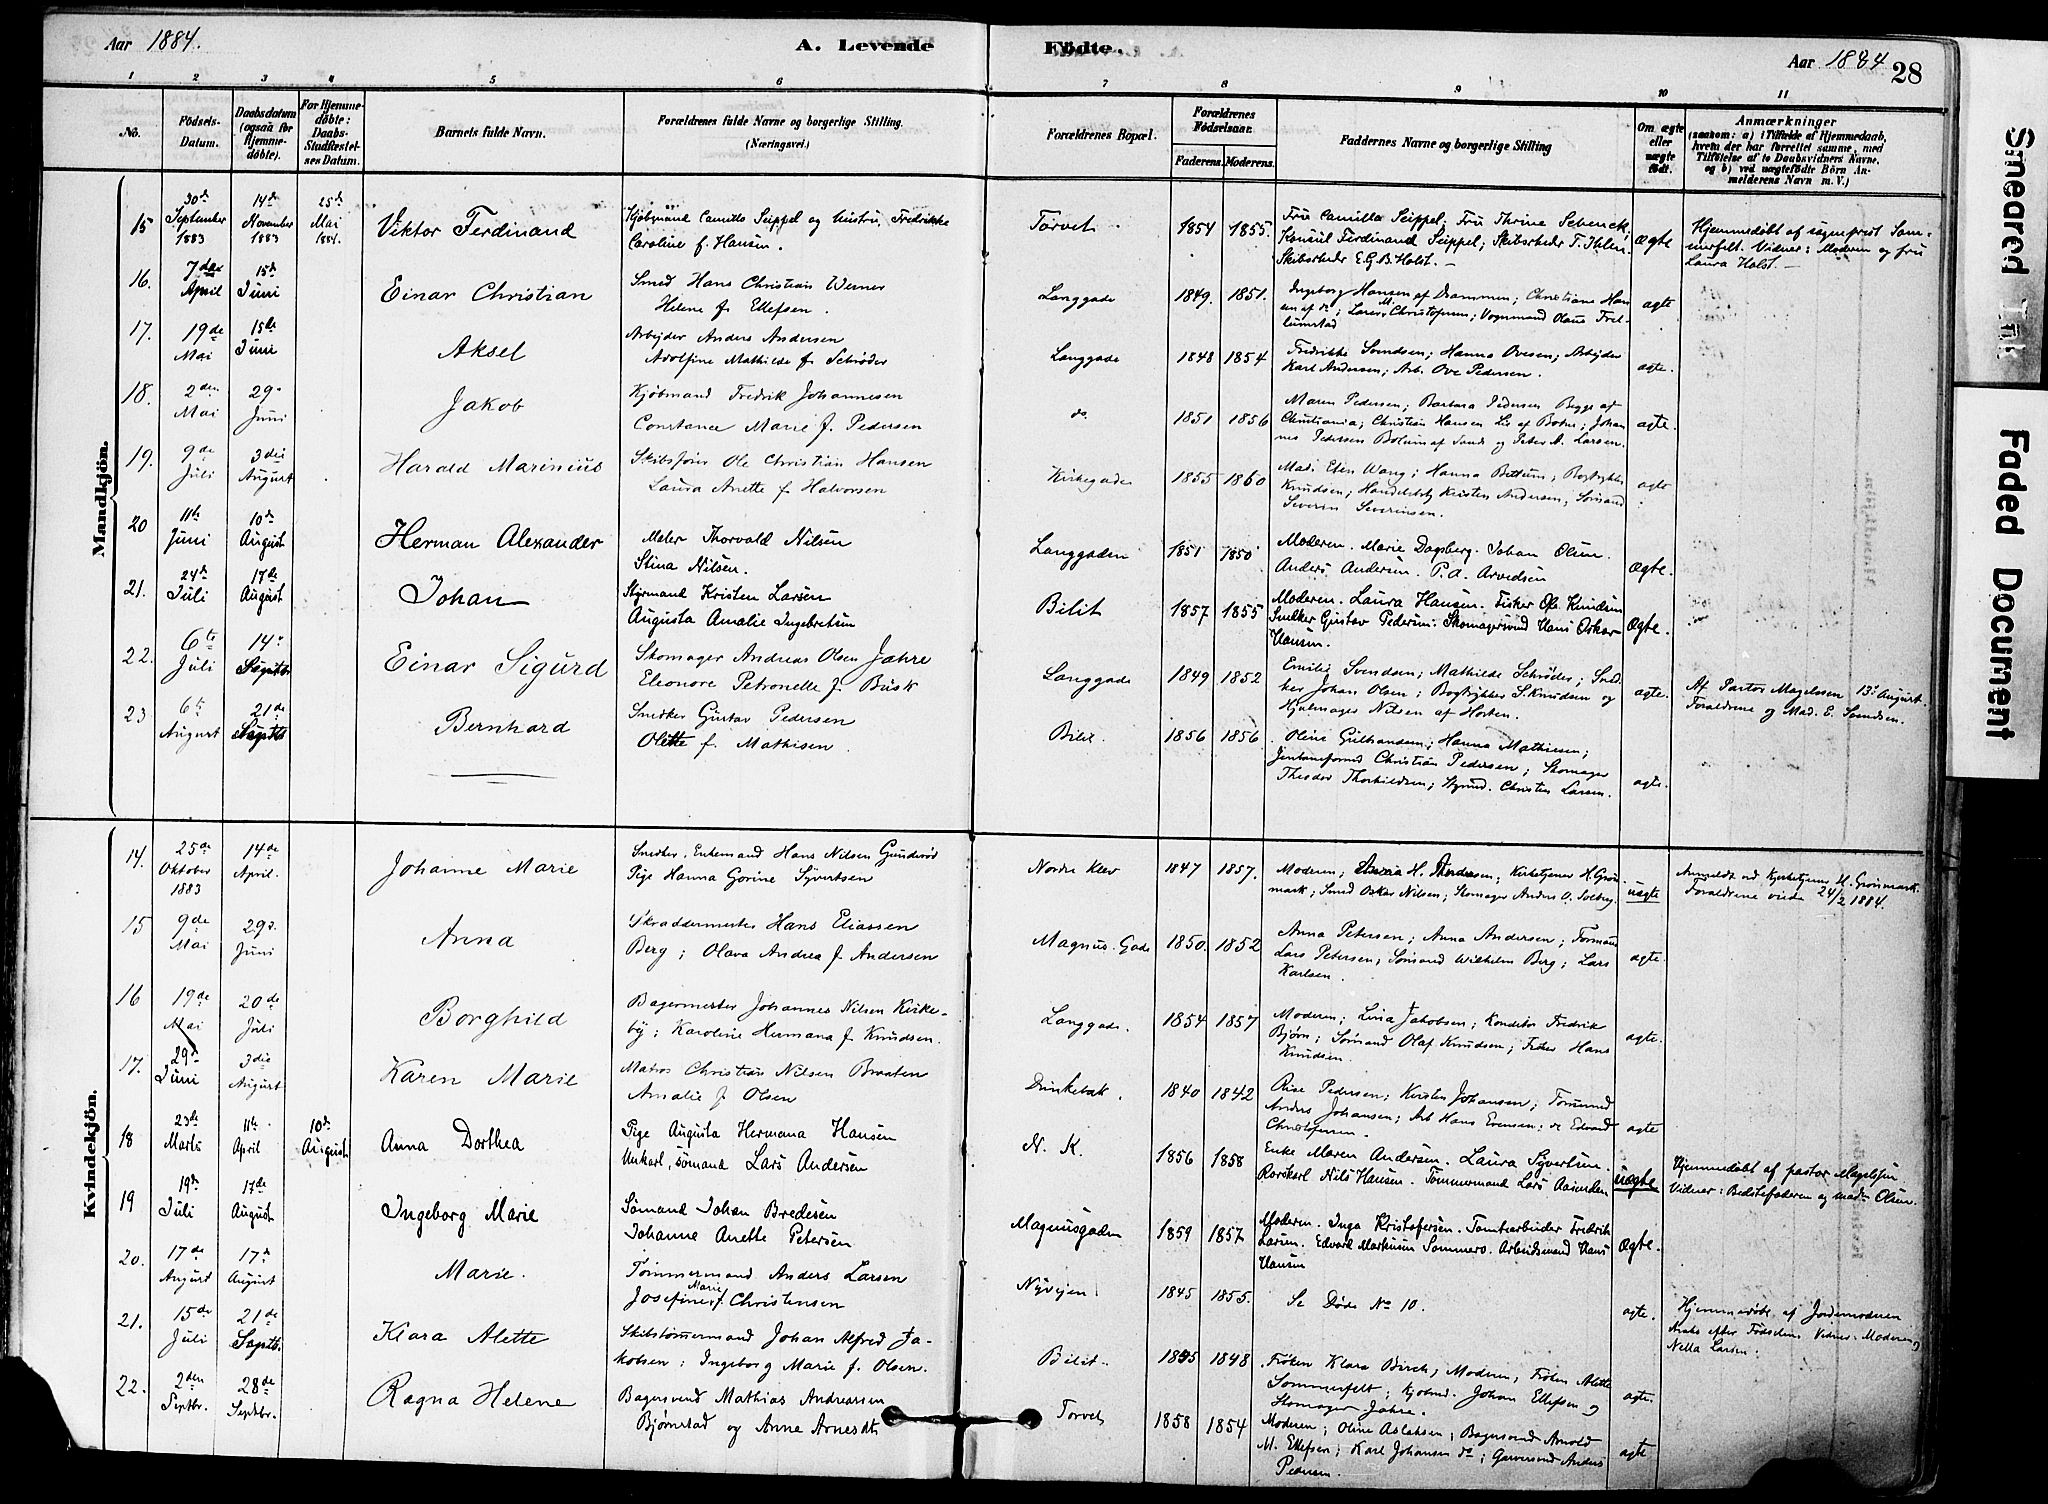 Aar 1884.
A. Levende
Födte.
Aar 1884
28
1 2 3 4 5 6 7 8 9 10 11
No.
Födsels-Datum.
Daabsdatum (ogsaa for Hjemmedöbte).
For Hjemmedöbte: Daabs-Stadfæstelses Datum.
Barnets fulde Navn.
Forældrenes fulde Navne og borgerlige Stilling. (Næringsvei.)
Forældrenes Bopæl.
Forældrenes Födselsaar.
Faderens. Moderens.
Faddernes Navne og borgerlige Stilling
Om ægte eller uægte födt.
Anmærkninger
(saasom: a) i Tilfælde af Hjemmedaab,
hvem der har forrettet samme, med
Tilföielse af to Daabsvidners Navne,
og b) ved uægtefödte Börn An-
melderens Navn m. V.)
Mandkjön.
15 30de September 1883 14de November 1883 25de Mai 1884.
Viktor Ferdinand
Kjöbmand Camillo Seippel og Hustru, Fredrikke
Caroline f. Hansen.
Torvet 1854 1855.
Fru Camilla Seippel; Fru Thrine Schenck;
Konsul Ferdinand Seippel; Skibsrheder T. Ihlen;
Skibsrheder E.G.B. Holst.
Ægte
Hjemmedöbt af sogneprest Som-
merfelt. Vidner: Moderen og fru
Laura Holst.
16. 7de April 15de Juni
Einar Christian
Smed Hans Christian Werner
Helene f. Ellefsen.
Langgade 1849. 1851.
Ingeborg Hansen af Drammen; Christiane Han
sen af do; Lars M. Christofersen; Vognmand Olaus
ægte
17. 19de Mai 15de Juni
Aksel
Arbejder Anders Andersen
Adolfine Mathilde f. Schröder
Langgade 1848 1854
Fredrikke Svendsen; Hanna Ovesen; Arbejder
Karl Andersen; Arb. Ove Pedersen.
ægte.
18. 2den Mai 29de Juni
Jakob
Kjöbmand Fredrik Johannesen
Constance Marie f. Pedersen
do 1851 1856
Maren Pedersen; Barbara Pedersen Begge af
Christiania; Christian Hansen Lis af Botne; Johan
nes Pedersen Bolum af Sande og Peter A. Larsen.
ægte.
19. 9de Juli 3die August
Harald Marinius
Skibsförer Ole Christian Hansen
Laura Anette f. Halvorsen
Kirkegade 1855 1860
Mad. Ellen Wang; Hanna Bettum; Bogtrykker
Knudsen; Handelsbetj. Kristen Andersen; Sömand
Severin Severinsen.
ægte
20 11te Juni 10de August
Herman Alexander
Maler Thorvald Nilsen
Stina Nilsen.
Langgaden 1851 1850
Moderen. Marie Dagsberg. Johan Olsen.
Anders Andersen. P.A. Arvedsen
Ægte.
21. 24de Juli 17de August
Johan
Styrmand Kristen Larsen
Augusta Amalie Ingebretsen
Bilit 1857 1855
Moderen. Laura Hansen. Fisker Ole Knudsen
Snekker Gustav Pedersen. Skomagersvend Hans Oskar
Hansen.
Ægte.
22. 6te Juli 14de Septbr
Einar Sigurd
Skomager Andreas Olsen Jahre
Eleonore Petronelle f. Busk
Langgade 1849 1852
Emilie Svendsen; Mathilde Schröder; Sned
ker Johan Olsen; Bogtrykker S. Knudsen og
Hjulmager Nilsen af Horten.
ægte.
Af Pastor Magelssen 13de August.
Forældrene og Mad. E. Svendsen.
23 6te August 21de Septbr
Bernhard
Snedker Gustav Pedersen
Olette f. Mathisen.
Bilit. 1856 1856
Oline Gulbrandsen; Hanna Mathisen;
Christian Pedersen; Skomager
Theodor Thorkildsen; Styrmd. Christen Larsen.
ægte.
Kvindekjön.
14. 25de Oktober 1883 14de April.
Johanne Marie
Snedker, Enkemand Hans Nilsen Gunderöd
Pige Hanna Gorine Syvertsen
Nordre Klev 1847 1857.
Moderen; Anna H. Andersen; Kirketjener H. Grön-
mark; Smed Oskar Nilsen; Skomager Anders O. Solberg.
uægte
Anmeldt ved Kirketjener H. Grönmark.
Forældrene viede 24/2 1884.
15 9de Mai 29de Juni
Anna
Skræddermester Hans Eliassen
Berg; Olava Andrea f. Andersen
Magnus. Gade 1850. 1852
Anna Petersen; Anna Andersen; Formand
Lars Petersen; Sömand Wilhelm Berg; Lars
Karlsen.
ægte.
16 19de Mai 20de Juli
Borghild
Bagermester Johannes Nilsen Kirke-
by; Karoline Hermana f. Knudsen.
Langgade. 1854 1857
Moderen; Lina Jakobsen; Konditor Fredrik
Björn; Sömand Olaf Knudsen; Fisker Hans
Knudsen.
ægte.
17. 29de Juni 3die August
Karen Marie
Matros Christian Nilsen Braaten
Amalie f. Olsen
1840 1842
Pedersen; Kirsten Johansen; Tömmermd
Anders Johansen; Arb. Hans Evensen; do Edvard
Christofersen.
ægte
18 23de Marts 11te April 10de August
Anna Dorthea
Pige Augusta Hermana Hansen
Unkarl, sömand Lars Andersen
N. K. 1856 1858
Enke Maren Andersen. Laura Syvertsen.
Rorskarl Nils Hansen. Tömmermand Lars
uægte
Hjemmedöbt af pastor Magelssen
Vidner: Bedstefaderen og madm Olsen.
19 19de Juli 17de August
Ingeborg Marie
Sömand Johan Bredesen
Johanne Anette Petersen
Magnusgaden 1859 1857
Moderen. Inga Kristofersen. Tomtearbeider Fredrik
Larsen. Edvard Markussen Sommero. Arbeidsmand Hans
Hansen
Ægte.
20. 17de August 17de August
Marie.
Tömmermand Anders Larsen
Josefine Marie f. Christensen
Nyvejen 1845 1855.
Se Döde No 10.
ægte.
Hjemmedöbt af Jordemoderen
straks efter Födselen. Vidner: Moderen og
Nella Larsen.
21. 15de Juli 21de Septbr.
Klara Alette
Skibstömmermand Johan Alfred Ja-
kobsen; Ingeborg Marie f. Olsen.
Bilit. 1845 1848
Fröken Klara Birch; Moderen; Fröken Alette
Sommerfelt; Kjöbmd. Johan Ellefsen og
Skomager Jahre.
ægte.
22. 2den Septbr. 28de Septbr.
Ragna Helene
Bagersvend Mathias Andreassen
Björnstad og Anne Arnesdt
Torvet 1858 1854
Moderen; Oline Aslaksen; Bagersvend Arnold
M. Ellefsen; Karl Johansen do; Garversvend Anders
Pedersen.
ægte
Smeared Ink
Faded Document